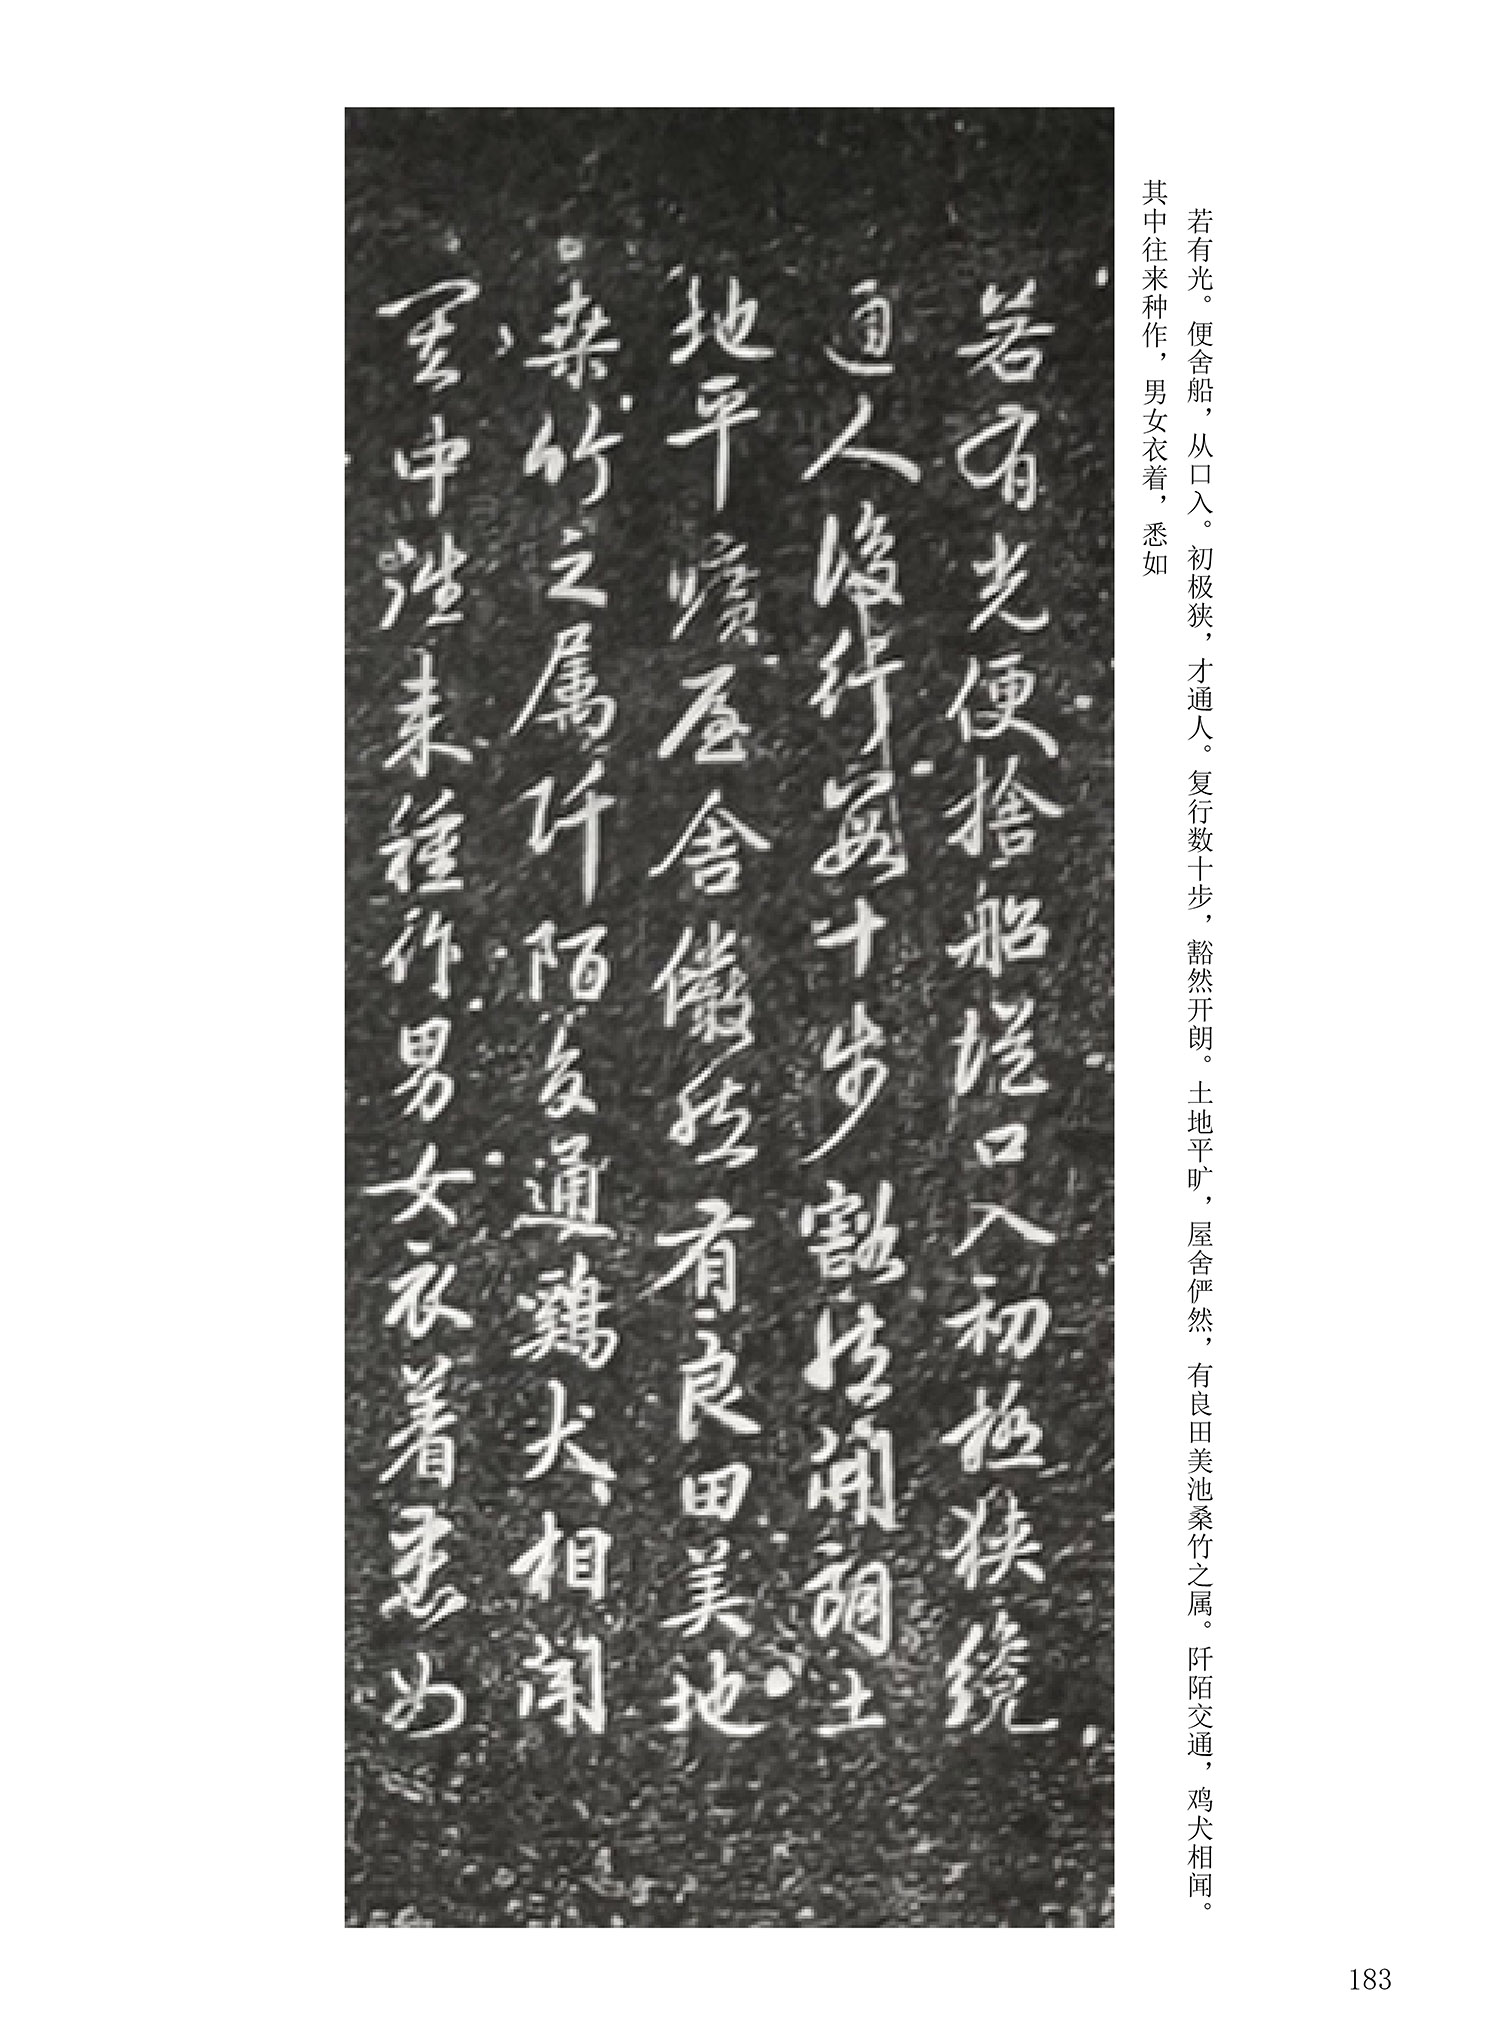 若有光。便舍船，从口入。初极狭，才通人。复行数十步，豁然开朗。土地平旷，屋舍俨然，有良田美池桑竹之属。阡陌交通，鸡犬相闻。
其中往来种作，男女衣着，悉如
若有光便捨船從口入初極狹纔
通人復行數十步豁然開朗土
地平曠屋舍儼然有良田美池
桑竹之属阡陌交通鷄犬相聞
其中往来種作男女衣着悉如
183